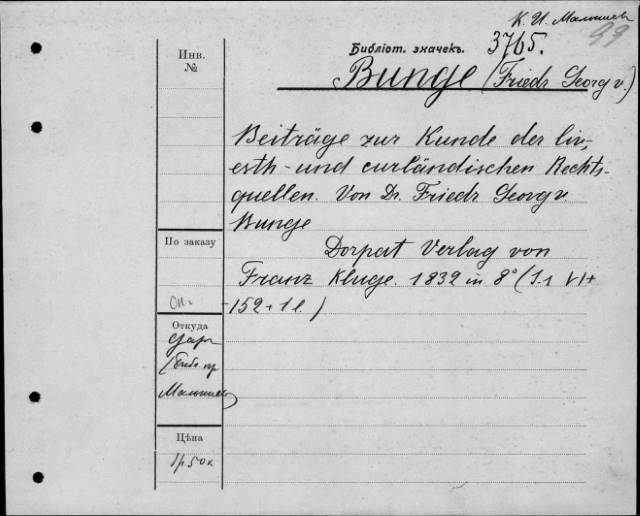 К. И. Малышев
99
Библіот. значекъ. 3765.
Bunge (Friedr Georg v.)
Инв.
№
Beiträge zur Kunde der liv-,
esth- und curländischen Rechts-
quellen. Von Dr. Friedr Georg v.
Bunge
По заказу
Dorpat Verlag von
Franz Kluge. 1832 in 8° (1.1 VI+
152+1 l.)
Откуда
Даръ
Малышева
Цѣна
1р 50к